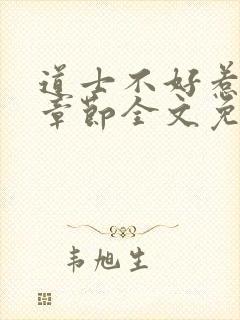 道士不好惹
章节全文免
韦旭生